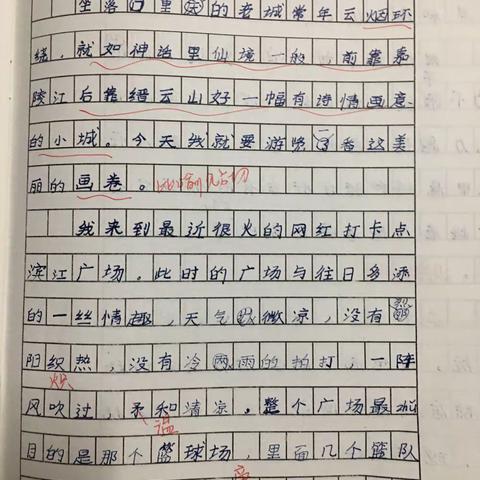 坐落□里的老城常年云烟环
绕，就如神话里仙境一般，前靠嘉
陵江后靠缙云山好一幅有诗情画意
的小城。今天我就要游览一番这美
丽的画卷。比喻贴切
我来到最近很火的网红打卡点
滨江广场。此时的广场与往日多添
的一丝情趣，天气微凉，没有烈
阳织热，没有冷雨的拍打，一阵
炽
风吹过，柔和清凉。整个广场最
温
目的是那个篮球场，里面几个篮队